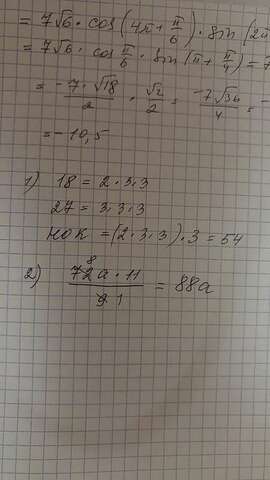 = 7√6 · cos(4π + π/6) · sin(2π
= 7√6 · cos π/6 · sin(π + π/4) = 7
= -7·√18/2 · √2/2 = -7√36/4 = -
= -10,5
1) 18 = 2·3·3
27 = 3·3·3
НОК = (2·3·3)·3 = 54
2) 72 8 a · 11 / 9 1 = 88a